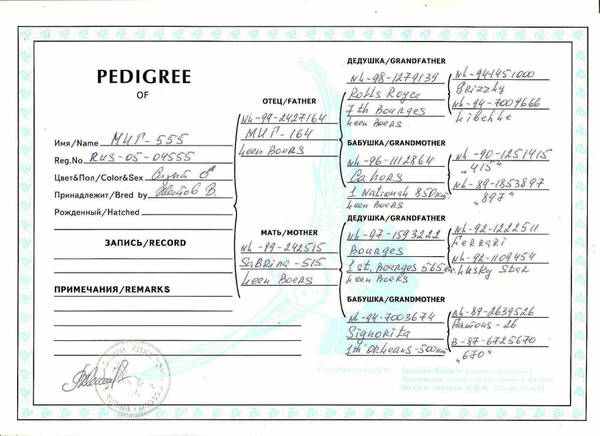 PEDIGREE
OF
Имя/Name МИГ-555
Reg.No RUS-05-04555
Цвет&Пол/Color&Sex Сизый ♂
Принадлежит/Bred by В.
Рожденный/Hatched
ЗАПИСЬ/RECORD
ПРИМЕЧАНИЯ/REMARKS
ОТЕЦ/FATHER
NL-99-2427164
МИГ-164
Leen Boers
МАТЬ/MOTHER
NL-99-242515
Sabrina-515
Leen Boers
ДЕДУШКА/GRANDFATHER
NL-98-1279139
Rolls Royce
7th Bourges
Leen Boers
БАБУШКА/GRANDMOTHER
NL-96-1112864
Cahors
1 Nationaal 850км
Leen Boers
ДЕДУШКА/GRANDFATHER
NL-97-1593222
Bourges
1st. Bourges
Leen Boers
БАБУШКА/GRANDMOTHER
NL-94-7003674
Signorita
1th Orleans-500км
NL-94-1451000
Grizzly
NL-94-7009666
Libelle
NL-90-1251415
"415"
NL-89-1853897
"897"
NL-92-1222511
Ferrari
NL-92-1109454
Lusky Star
NL-89-2639526
Famous-26
B-87-6725670
"670"